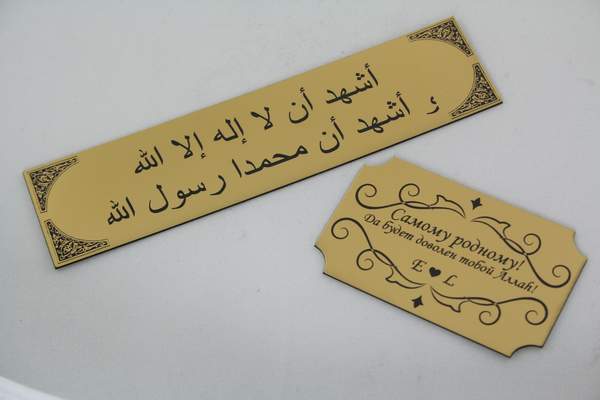 أشهد أن لا إله إلا الله
و أشهد أن محمدا رسول الله
Самому родному!
Да будет доволен тобой Аллах!
E ♥ L